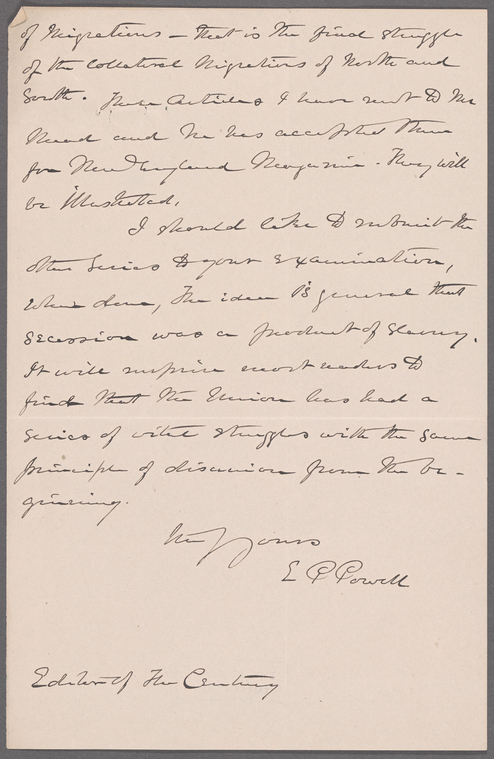 of Migrations – that is the final struggle
of the Collateral Migrations of North and
South. These Articles I have sent to Mr
Mead and he has accepted them
for New England Magazine. They will
be Illustrated.
I should like to submit the
other Series to your examination,
when done, The idea is general that
Secession was a product of Slavery.
It will surprise most readers to
find that the Union has had a
series of vital struggles with the same
principle of disunion from the be-
ginning.
Yours
E P Powell
Editor of The Century